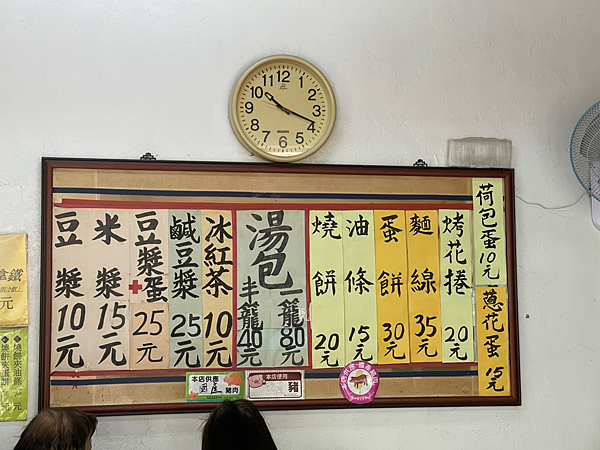 豆漿10元
米漿15元
豆漿+蛋25元
鹹豆漿25元
冰紅茶10元
湯包
半籠40元
一籠80元
燒餅20元
油條15元
蛋餅30元
麵線35元
烤花捲20元
荷包蛋10元
蔥花蛋15元
元
燒餅夾油條
燒餅夾蛋
本店供應
國產
豬肉
本店使用
豬
12
1
2
3
4
5
6
7
8
9
10
11